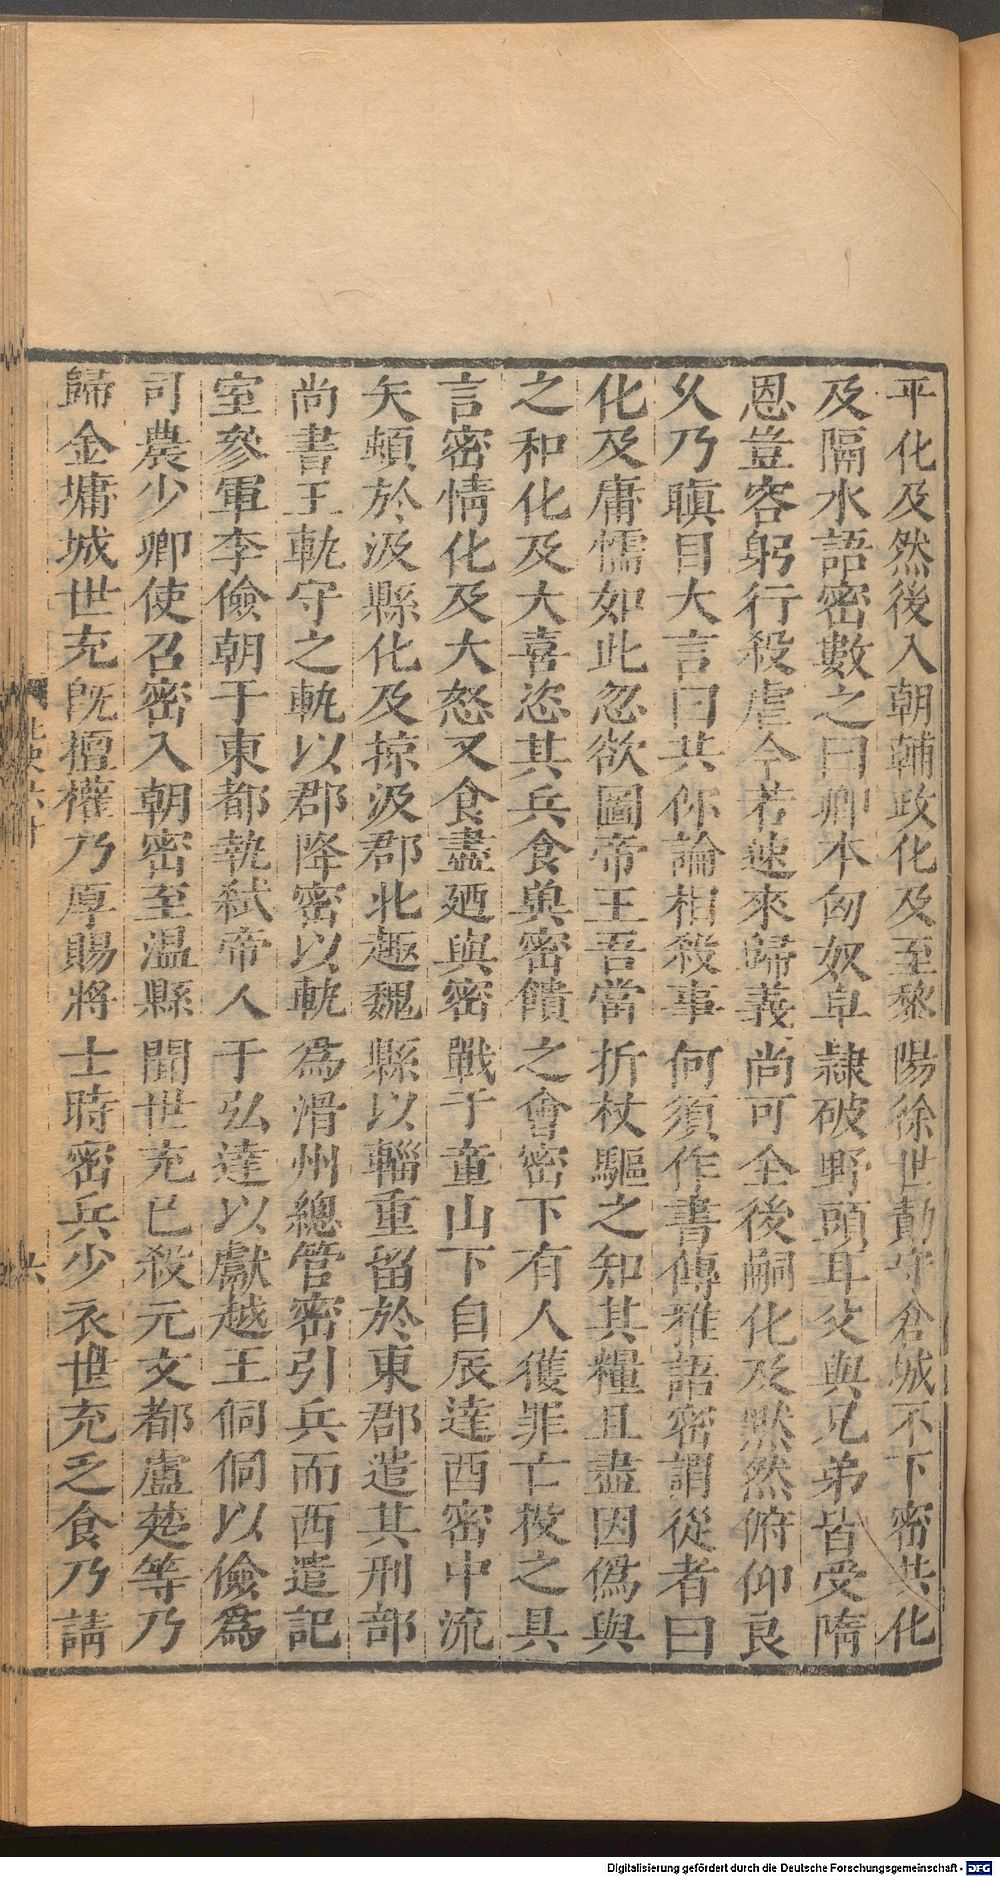 平化及然後入朝輔政化及至黎陽徐世勣守倉城不下密共化
及隔水語密數之曰卿本匈奴皁隸破野頭耳父與兄弟皆受隋
恩豈容躬行殺虐今若速來歸義尚可全後嗣化及黙然俯仰良
乆乃瞋目大言曰共你論相殺事何須作書傳雅語密謂從者曰
化及庸懦如此忽欲圖帝王吾當折杖驅之知其糧且盡因僞與
之和化及大喜恣其兵食兾密饋之會密下有人獲罪亡投之具
言密情化及大怒又食盡廼與密戰于童山下自辰達酉密中流
矢頓於汲縣化及掠汲郡北趣魏縣以輜重留於東郡遣其刑部
尚書王軌守之軌以郡降密以軌爲滑州總管密引兵而西遣記
室參軍李儉朝于東都執弑帝人于弘達以獻越王侗侗以儉爲
司農少卿使召密入朝密至温縣聞世充已殺元文都盧楚等乃
歸金墉城世充旣擅權乃厚賜將士時密兵少衣世充乏食乃請
六
Digitalisierung gefördert durch die Deutsche Forschungsgemeinschaft - DFG